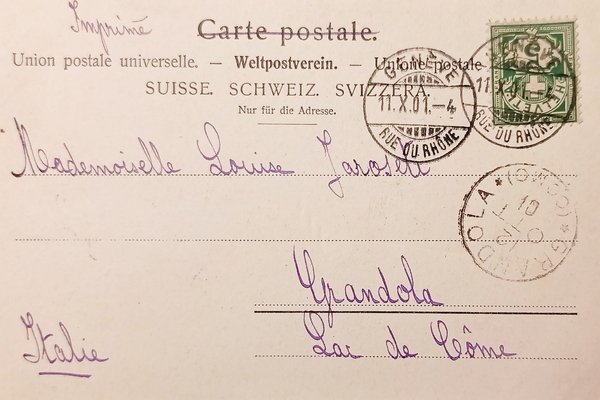 Imprimé
Carte postale.
Union postale universelle. — Weltpostverein. — Unione postale
SUISSE. SCHWEIZ. SVIZZERA.
Nur für die Adresse.
GENÈVE
11.X.01.–4
RUE DU RHÔNE
11.X.01.–4
RUE DU RHÔNE
HELVETIA
Mademoiselle Louise
GRANDOLA
(COMO)
Grandola
Lac de Côme
Italie